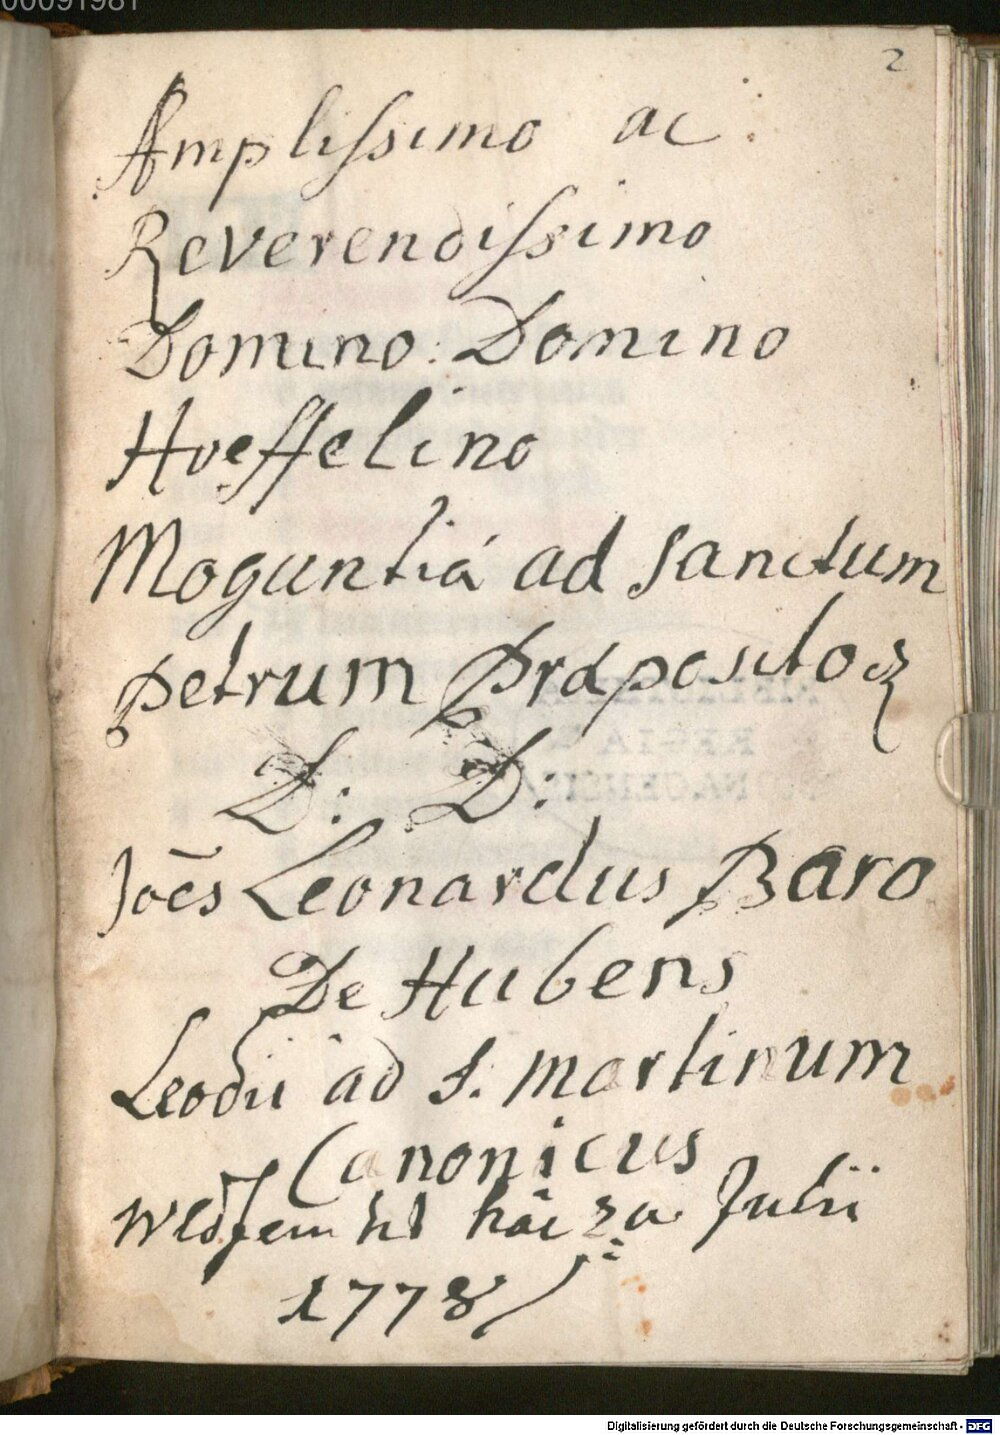 00091981
2
Amplissimo ac
Reverendissimo
Domino: Domino
Hoeffelino
Moguntiá ad sanctum
petrum præposito
D: D:
Joēs Leonardus Baro
De Hubens
Leodii ad S. Martinum
Canonicus
Julii
1778
Digitalisierung gefördert durch die Deutsche Forschungsgemeinschaft - DFG